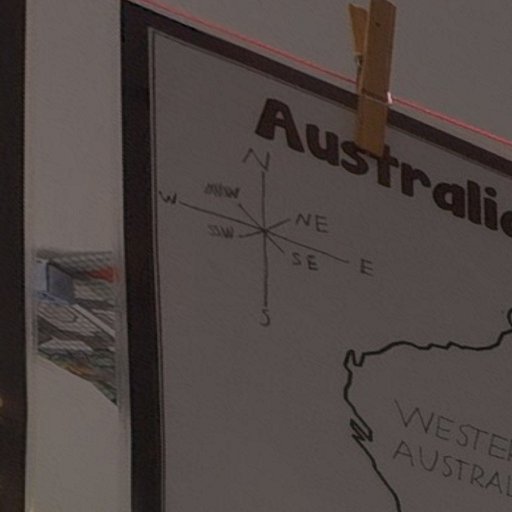 Australia
N
W
NE
SE
E
S
WESTE
AUSTRAL